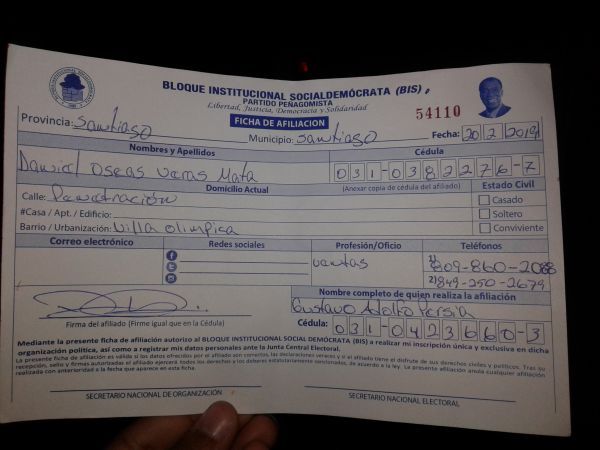 BLOQUE INSTITUCIONAL SOCIALDEMÓCRATA (BIS)
PARTIDO PEÑAGOMISTA
Libertad, Justicia, Democracia y Solidaridad
FICHA DE AFILIACIÓN
54110
Provincia: Santiago Municipio: Santiago Fecha: 20/2/2019
Nombres y Apellidos Cédula
Daniel Oseas Veras Mata 031-0382276-7
Domicilio Actual (Anexar copia de cédula del afiliado) Estado Civil
Calle: Penetración Casado
#Casa / Apt. / Edificio: Soltero
Barrio / Urbanización: Villa Olimpica Conviviente
Correo electrónico Redes sociales Profesión/Oficio Teléfonos
ventas 1) 809-860-2088
2) 849-250-2679
Nombre completo de quien realiza la afiliación
Gustavo Adolfo
Firma del afiliado (Firme igual que en la Cédula) Cédula: 031-0423660-3
Mediante la presente ficha de afiliación autorizo al BLOQUE INSTITUCIONAL SOCIAL DEMÓCRATA (BIS) a realizar mi inscripción única y exclusiva en dicha
organización política, así como a registrar mis datos personales ante la Junta Central Electoral.
La presente ficha de afiliación es válida si los datos ofrecidos por el afiliado son correctos, las declaraciones veraces y si el afiliado tiene el disfrute de sus derechos civiles y políticos. Tras su
recepción, sello y firmas autorizadas el afiliado ejercerá todos los derechos y los deberes estatutariamente sancionados, de acuerdo a la ley. La presente afiliación anula cualquier afiliación
realizada con anterioridad a la fecha que aparece en esta ficha.
SECRETARIO NACIONAL DE ORGANIZACIÓN SECRETARIO NACIONAL ELECTORAL